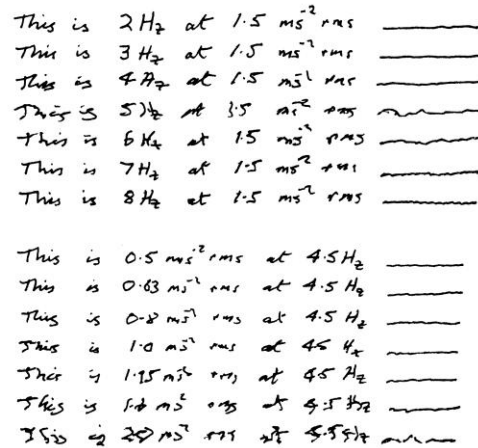 This is 2 Hz at 1.5 ms⁻² rms
This is 3 Hz at 1.5 ms⁻² rms
This is 4 Hz at 1.5 ms⁻² rms
This is 5 Hz at 1.5 ms⁻² rms
This is 6 Hz at 1.5 ms⁻² rms
This is 7 Hz at 1.5 ms⁻² rms
This is 8 Hz at 1.5 ms⁻² rms
This is 0.5 ms⁻² rms at 4.5 Hz
This is 0.63 ms⁻² rms at 4.5 Hz
This is 0.8 ms⁻² rms at 4.5 Hz
This is 1.0 ms⁻² rms at 4.5 Hz
This is 1.25 ms⁻² rms at 4.5 Hz
This is ms⁻² rms at 4.5 Hz
This is 2.0 ms⁻² rms at 4.5 Hz